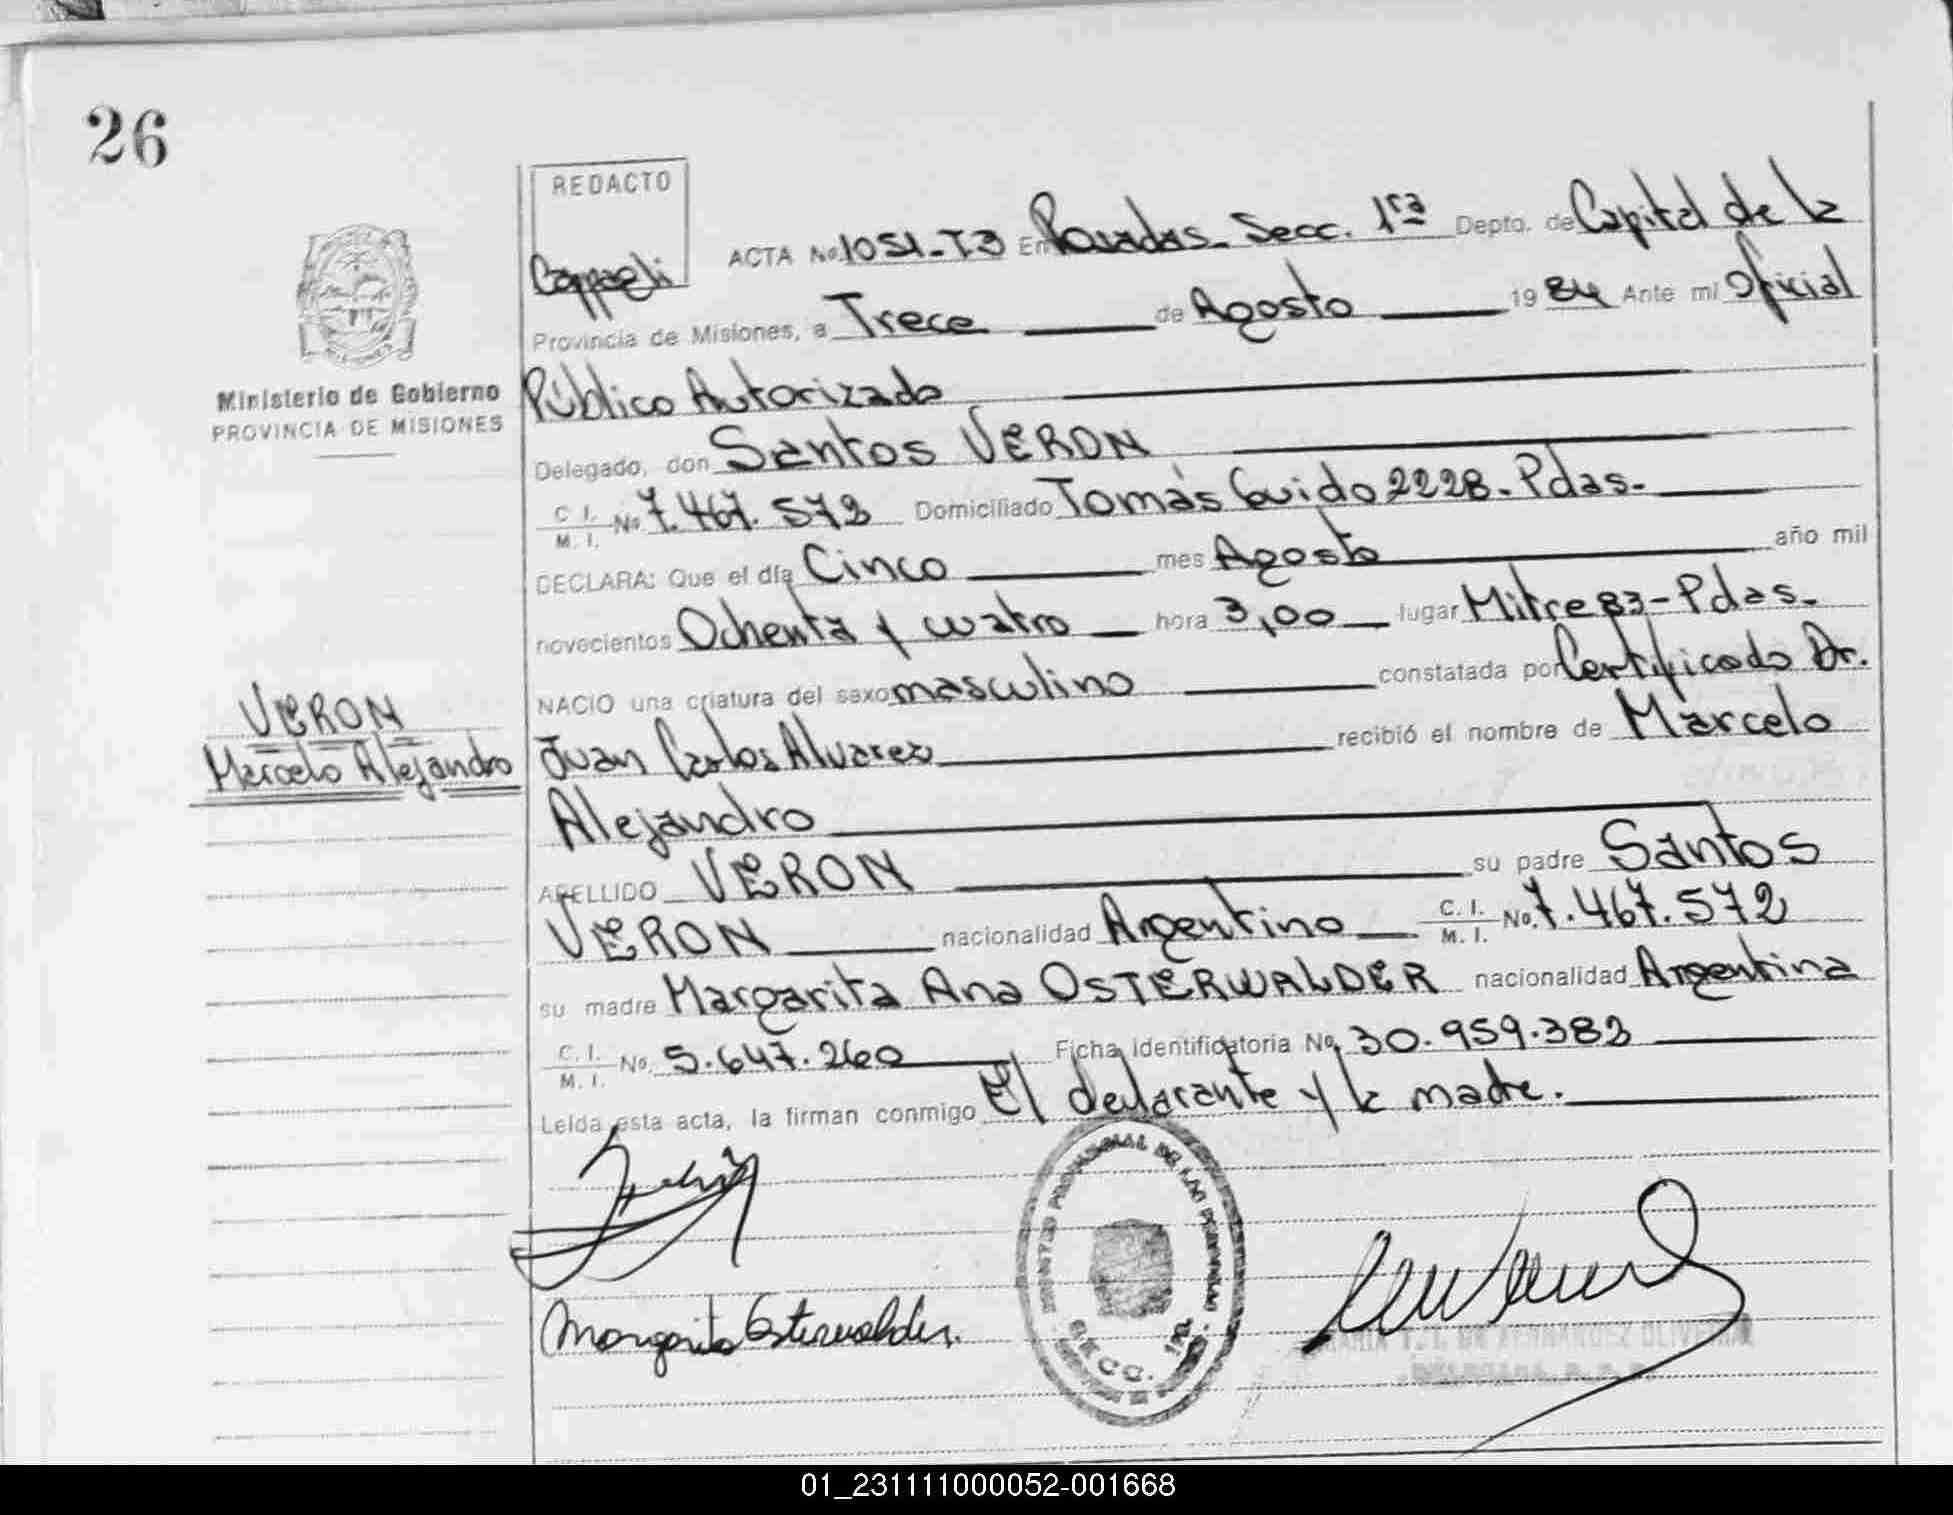 26
REDACTO
Cappagli
ACTA No 1051-T3 En Posadas - Secc. 1ra Depto. de Capital de la
Provincia de Misiones, a Trece de Agosto 1984 Ante mi Oficial
Público Autorizado
Ministerio de Gobierno
PROVINCIA DE MISIONES
Delegado, don Santos VERON
C. I. M. I. No 7.467.572 Domiciliado Tomás Guido 2228 - Pdas.
DECLARA: Que el día Cinco mes Agosto año mil
novecientos Ochenta y cuatro hora 3,00 lugar Mitre 83 - Pdas.
NACIO una criatura del sexo masculino constatada por Certificado Dr.
VERON
Marcelo Alejandro
Juan Carlos Alvarez recibió el nombre de Marcelo
Alejandro
APELLIDO VERON su padre Santos
VERON nacionalidad Argentino C. I. M. I. No. 7.467.572
su madre Margarita Ana OSTERWALDER nacionalidad Argentina
C. I. M. I. No. 5.647.260 Ficha identificatoria No. 30.959.382
Leída esta acta, la firman conmigo El declarante y la madre.
PROVINCIAL DE LAS PERSONAS
Margarita Osterwalder.
DE FERNANDEZ OLIVEIRA
01_231111000052-001668